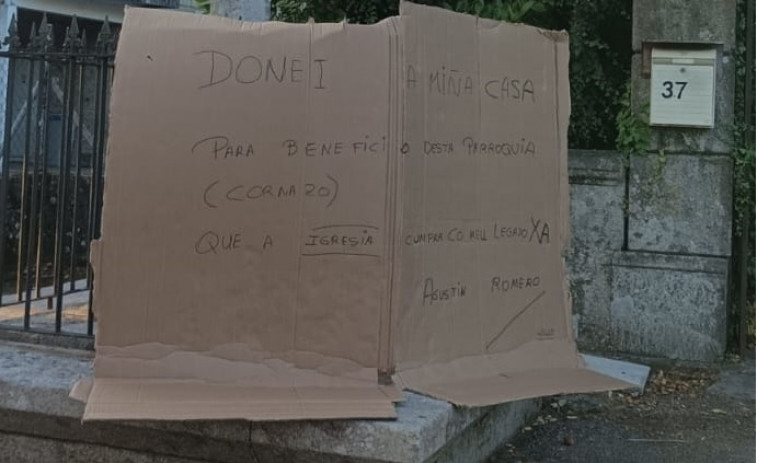 DONEI A MIÑA CASA
PARA BENEFICIO DESTA PARROQUIA
(CORNAZO)
QUE A IGRESIA CUMPRA CO MEU LEGADO XA
AGUSTIN ROMERO
37